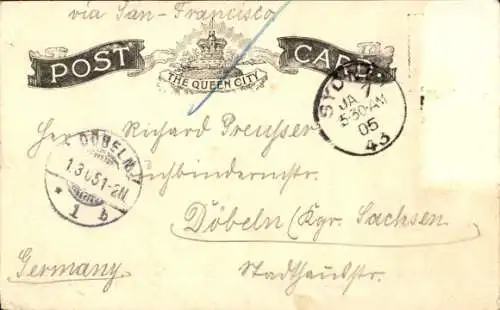 via San-Francisco
POST CARD
THE QUEEN CITY
SYDNEY
JA 7
5 30 AM
05
43
Herrn Richard Preusser
DÖBELN
1.3.05.1-2N.
* 1 b
Döbeln (Kgr. Sachsen
Germany.